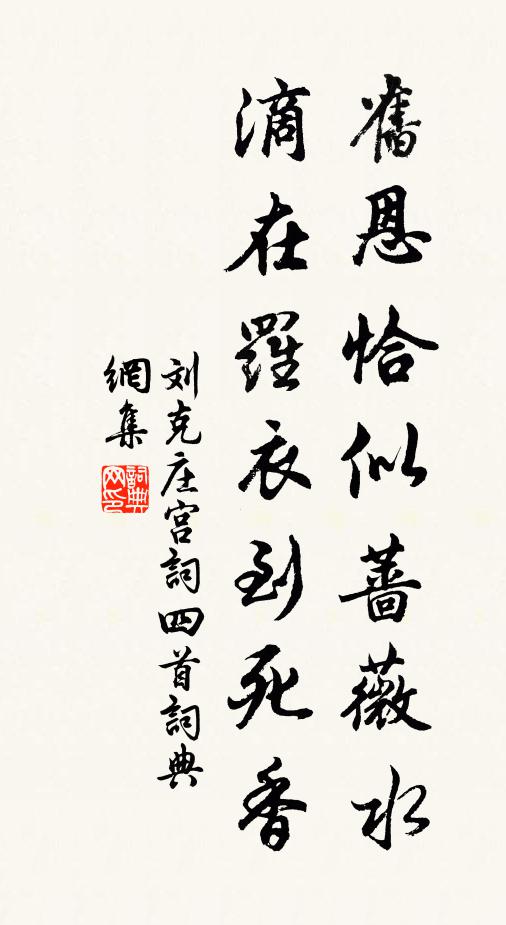 舊恩恰似薔薇水
滴在羅衣到死香
刘克庄宫詞四首詞典
網集
詞典网印